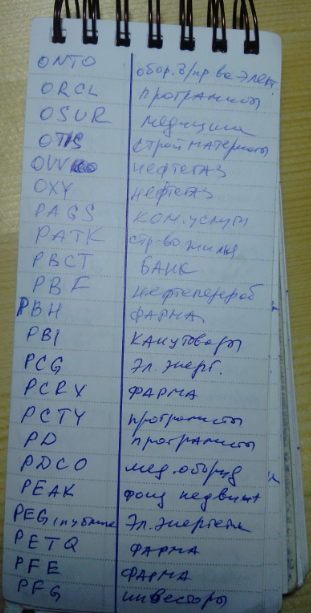 ONTO обор. д/пр-ва элект.
ORCL программисты
OSUR медицина
OTIS стройматериалы
OVV нефтегаз
OXY нефтегаз
PAGS ком. услуги
PATK стр-во жилья
PBCT БАНК
PBF нефтеперераб
PBH ФАРМА
PBI канцтовары
PCG эл. энерг.
PCRX ФАРМА
PCTY программисты
PD программисты
PDCO мед. оборуд
PEAK фонд недвиж
PEG эл. энергетик
PETQ ФАРМА
PFE ФАРМА
PFG инвесторы